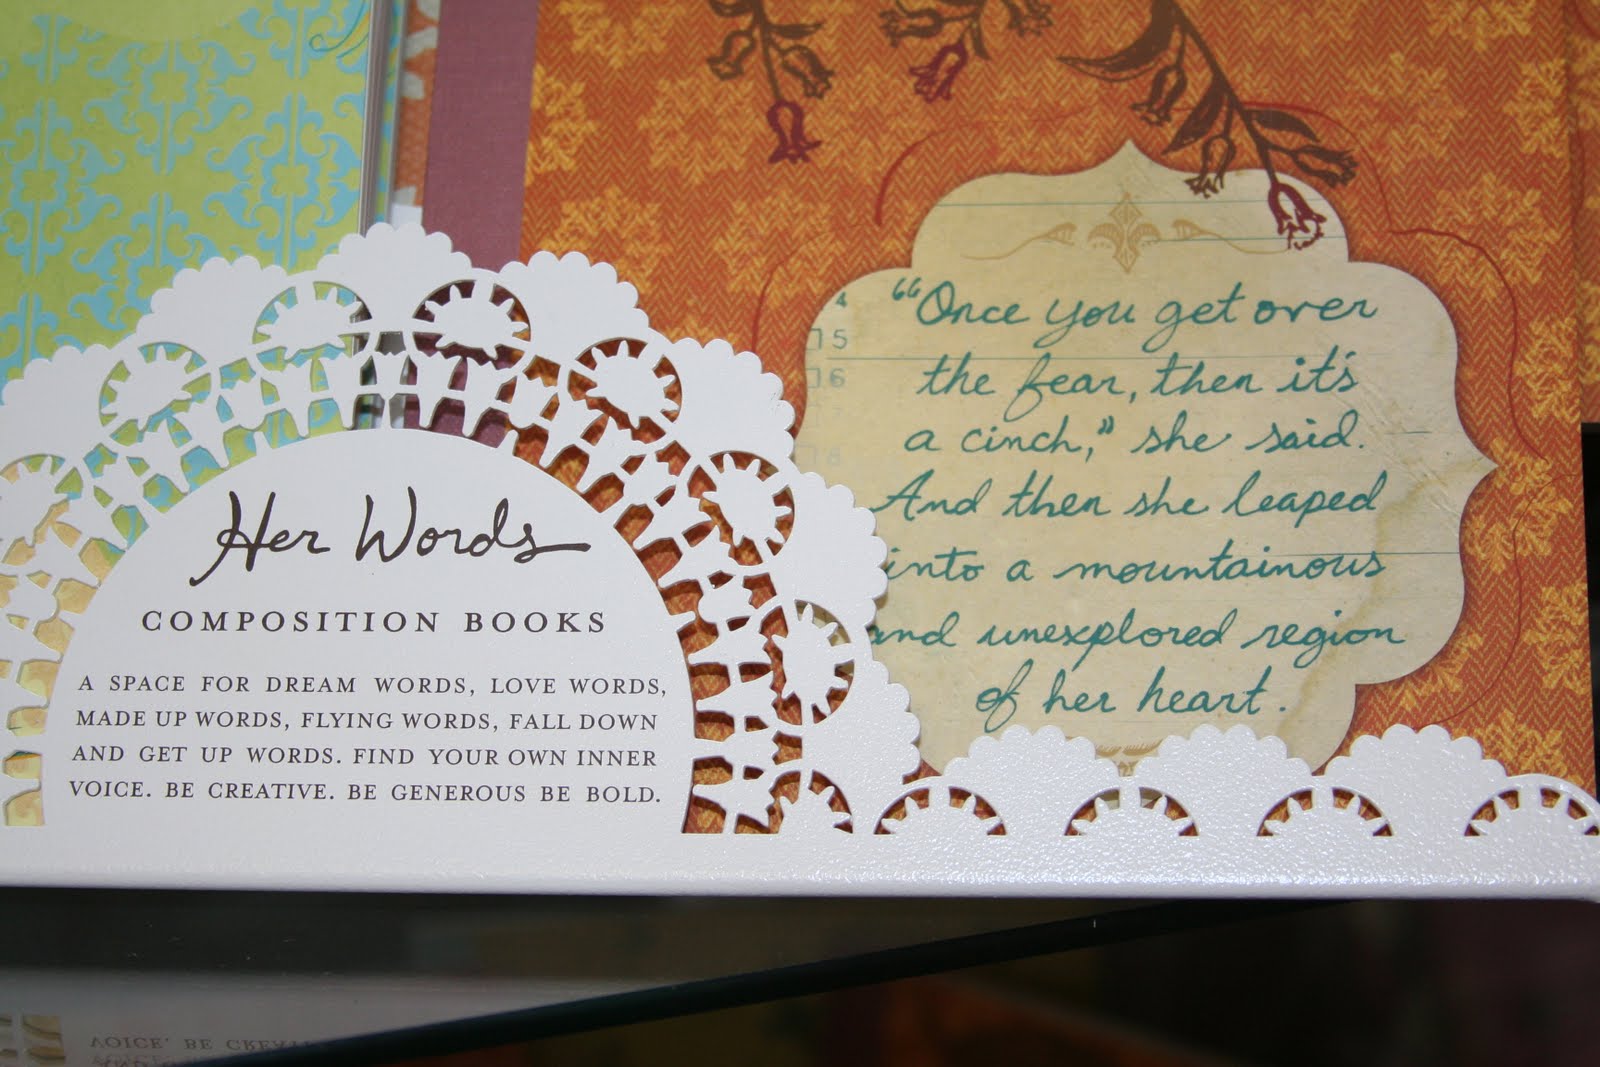 Her Words
COMPOSITION BOOKS
A SPACE FOR DREAM WORDS, LOVE WORDS,
MADE UP WORDS, FLYING WORDS, FALL DOWN
AND GET UP WORDS. FIND YOUR OWN INNER
VOICE. BE CREATIVE. BE GENEROUS BE BOLD.
4
5
6
7
8
“Once you get over
the fear, then it's
a cinch,” she said.
And then she leaped
into a mountainous
and unexplored region
of her heart.